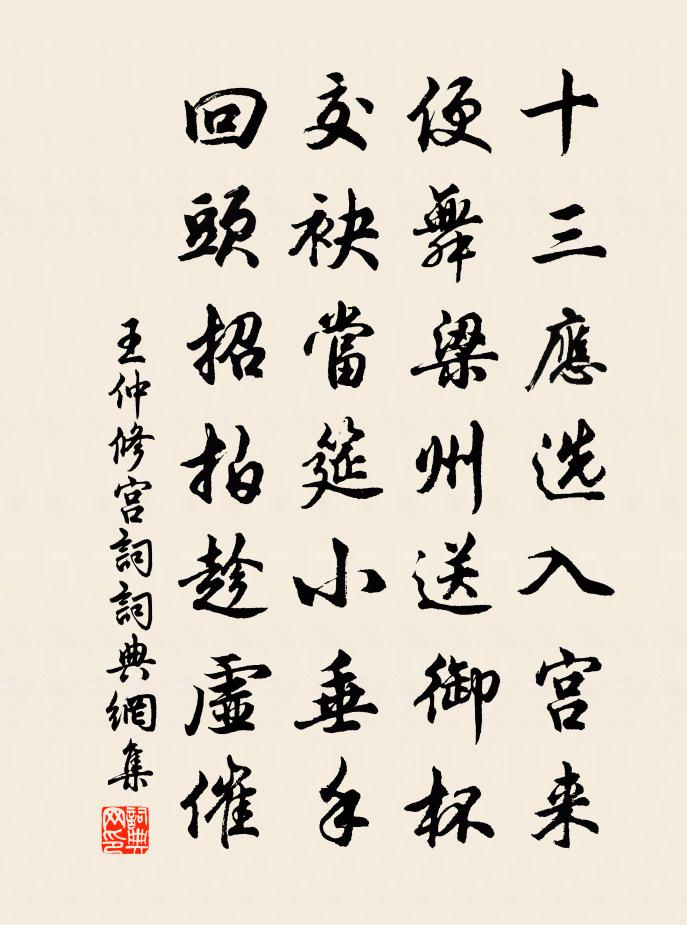 十三應选入宫来
便舞梁州送御杯
交袂當筵小垂手
回頭招拍趁虚催
王仲修宫詞詞典網集
詞典网印